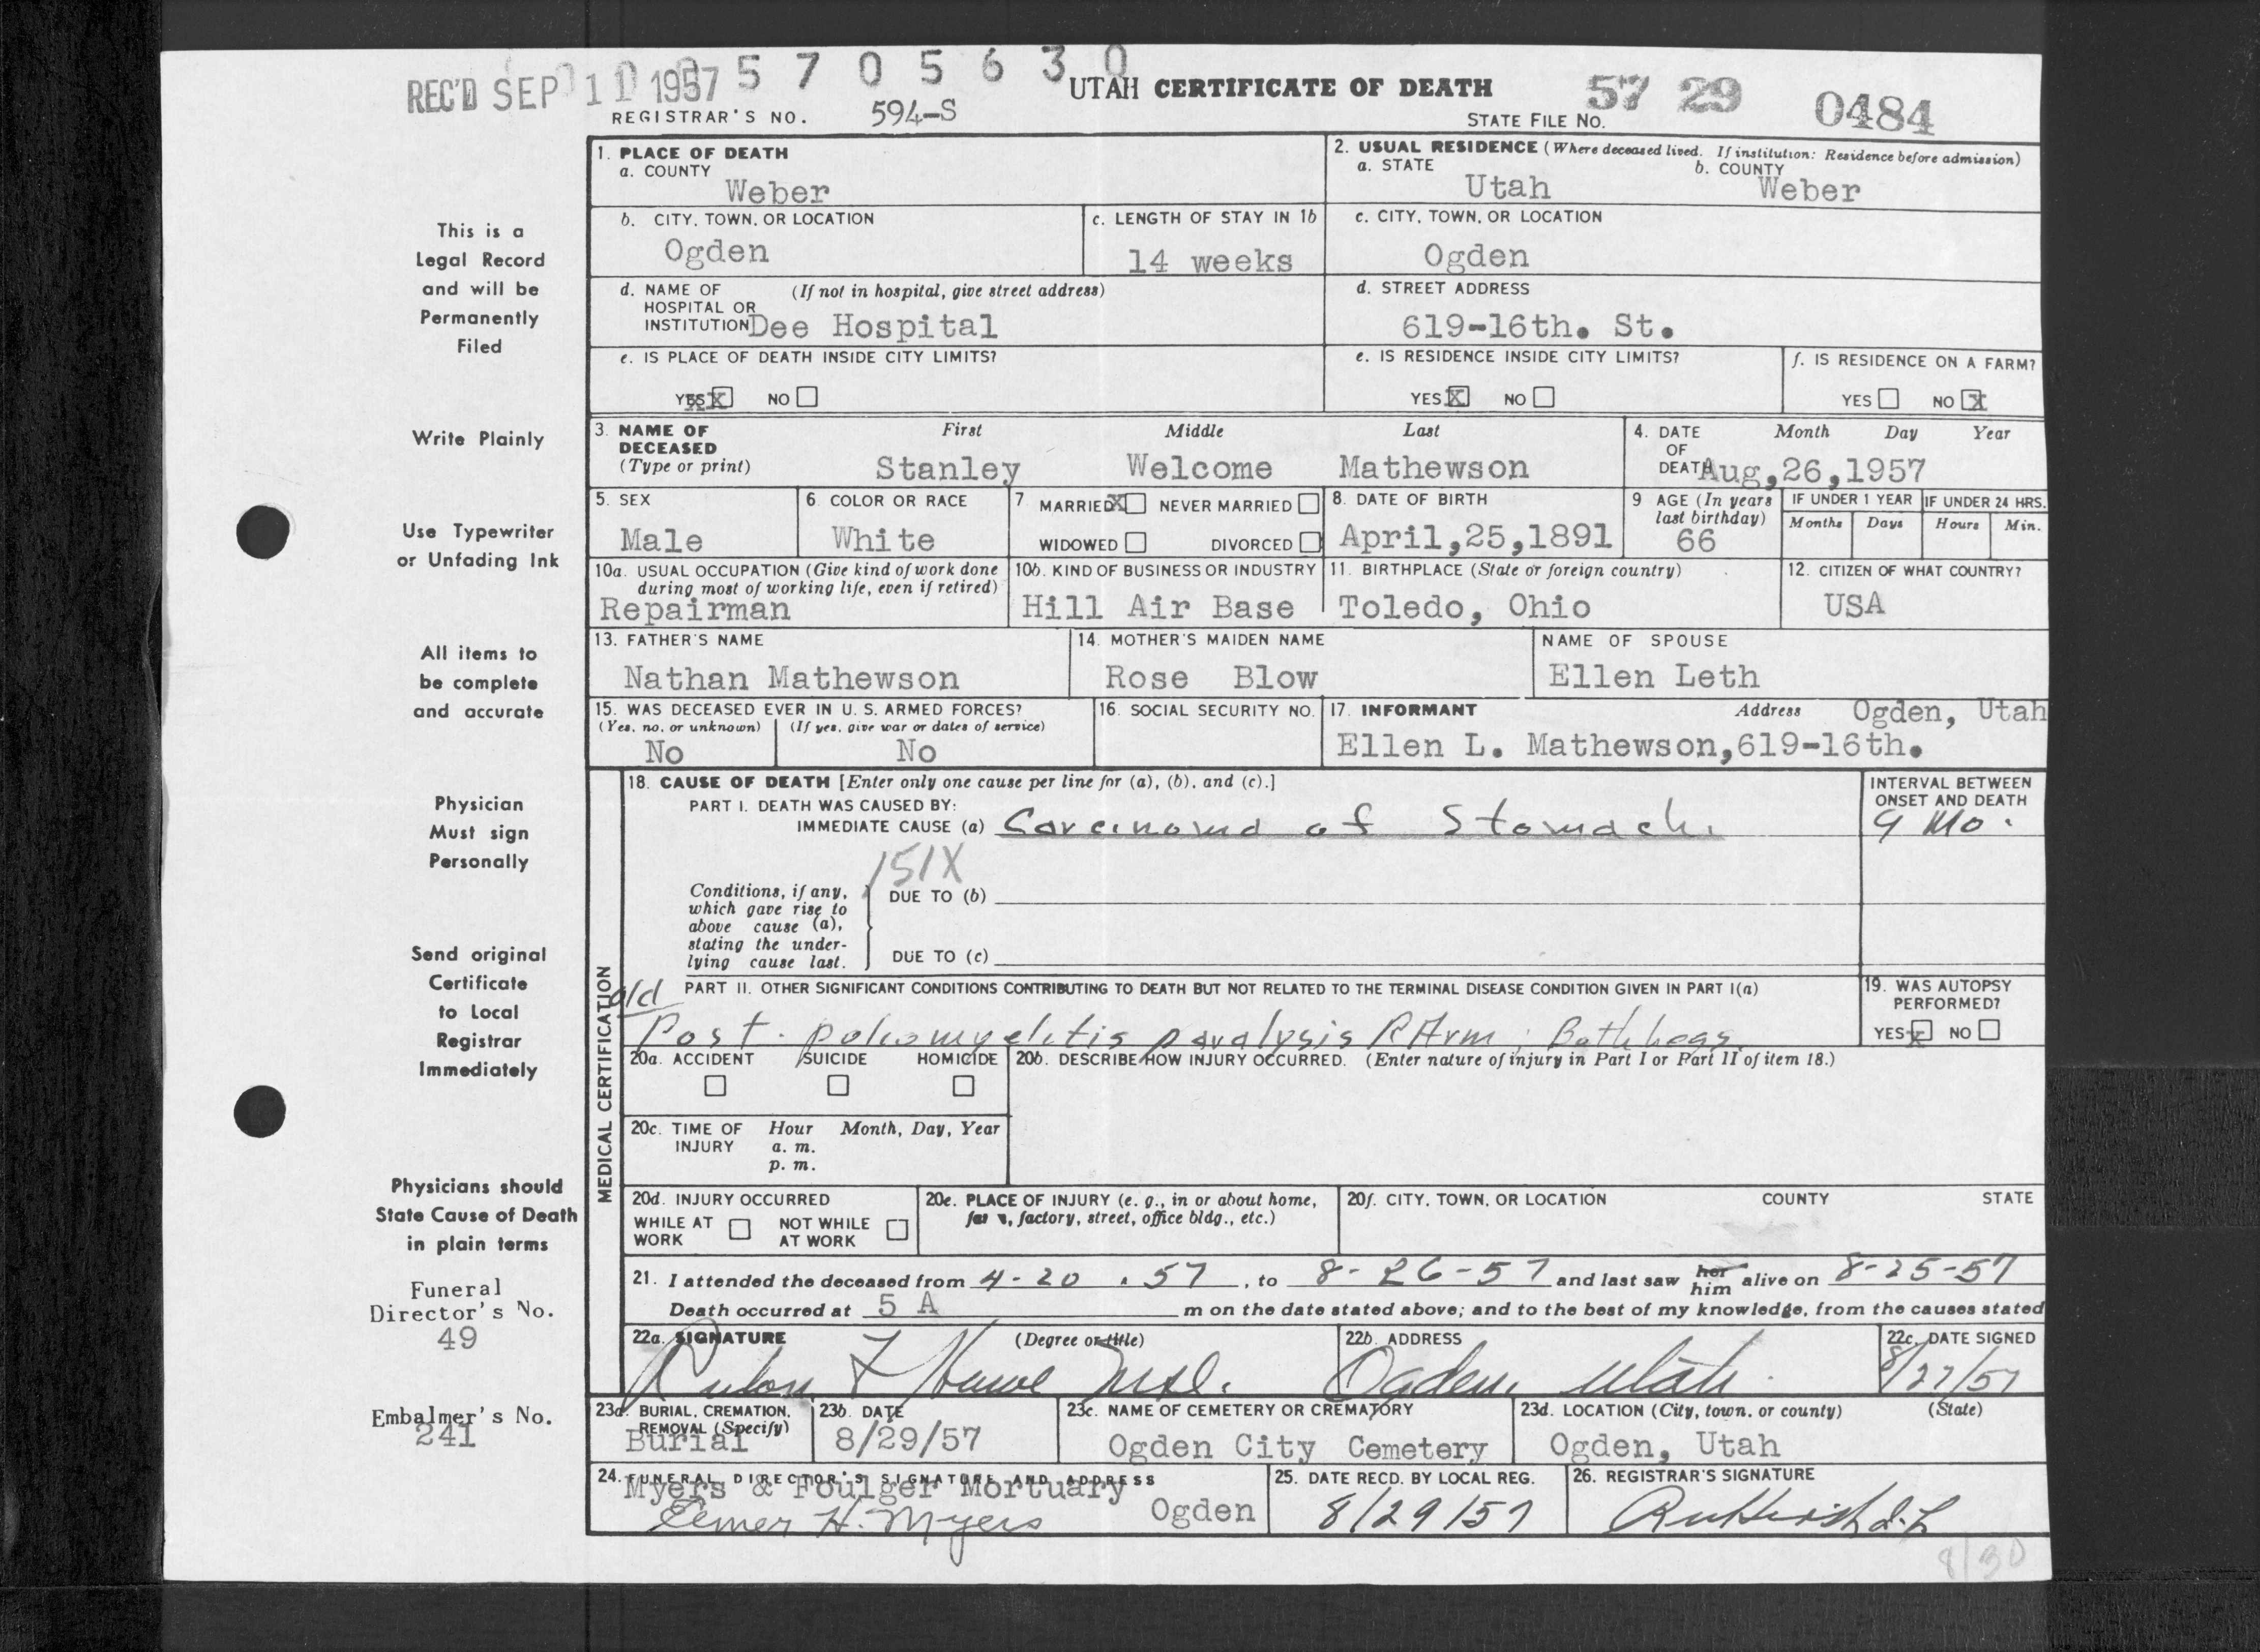 REC'D SEP 11 1957 5 7 0 5 6 3 0
UTAH CERTIFICATE OF DEATH
57 29 0484
REGISTRAR'S NO. 594-S
STATE FILE NO.
This is a
Legal Record
and will be
Permanently
Filed
Write Plainly
Use Typewriter
or Unfading Ink
All items to
be complete
and accurate
Physician
Must sign
Personally
Send original
Certificate
to Local
Registrar
Immediately
Physicians should
State Cause of Death
in plain terms
Funeral
Director's No.
49
Embalmer's No.
241
1. PLACE OF DEATH
a. COUNTY
Weber
2. USUAL RESIDENCE (Where deceased lived. If institution: Residence before admission)
a. STATE b. COUNTY
Utah Weber
b. CITY, TOWN, OR LOCATION
Ogden
c. LENGTH OF STAY IN 1b
14 weeks
c. CITY, TOWN, OR LOCATION
Ogden
d. NAME OF (If not in hospital, give street address)
HOSPITAL OR
INSTITUTION Dee Hospital
d. STREET ADDRESS
619-16th. St.
e. IS PLACE OF DEATH INSIDE CITY LIMITS?
YES X NO
e. IS RESIDENCE INSIDE CITY LIMITS?
YES X NO
f. IS RESIDENCE ON A FARM?
YES NO X
3. NAME OF First Middle Last
DECEASED
(Type or print) Stanley Welcome Mathewson
4. DATE Month Day Year
OF
DEATH Aug,26,1957
5. SEX
Male
6. COLOR OR RACE
White
7 MARRIED X NEVER MARRIED
WIDOWED DIVORCED
8. DATE OF BIRTH
April,25,1891
9 AGE (In years
last birthday)
66
IF UNDER 1 YEAR IF UNDER 24 HRS.
Months Days Hours Min.
10a. USUAL OCCUPATION (Give kind of work done
during most of working life, even if retired)
Repairman
10b. KIND OF BUSINESS OR INDUSTRY
Hill Air Base
11. BIRTHPLACE (State or foreign country)
Toledo, Ohio
12. CITIZEN OF WHAT COUNTRY?
USA
13. FATHER'S NAME
Nathan Mathewson
14. MOTHER'S MAIDEN NAME
Rose Blow
NAME OF SPOUSE
Ellen Leth
15. WAS DECEASED EVER IN U. S. ARMED FORCES?
(Yes, no, or unknown) (If yes, give war or dates of service)
No No
16. SOCIAL SECURITY NO.
17. INFORMANT Address Ogden, Utah
Ellen L. Mathewson,619-16th.
MEDICAL CERTIFICATION
18. CAUSE OF DEATH [Enter only one cause per line for (a), (b), and (c).]
PART I. DEATH WAS CAUSED BY:
IMMEDIATE CAUSE (a) Carcinoma of Stomach.
INTERVAL BETWEEN
ONSET AND DEATH
9 Mo.
151X
Conditions, if any,
which gave rise to
above cause (a),
stating the under-
lying cause last.
DUE TO (b)
DUE TO (c)
PART II. OTHER SIGNIFICANT CONDITIONS CONTRIBUTING TO DEATH BUT NOT RELATED TO THE TERMINAL DISEASE CONDITION GIVEN IN PART I(a)
old
Post. poliomyelitis paralysis R Arm; Both Legs
19. WAS AUTOPSY
PERFORMED?
YES X NO
20a. ACCIDENT SUICIDE HOMICIDE
20b. DESCRIBE HOW INJURY OCCURRED. (Enter nature of injury in Part I or Part II of item 18.)
20c. TIME OF Hour Month, Day, Year
INJURY a. m.
p. m.
20d. INJURY OCCURRED
WHILE AT WORK NOT WHILE AT WORK
20e. PLACE OF INJURY (e. g., in or about home,
farm, factory, street, office bldg., etc.)
20f. CITY, TOWN, OR LOCATION COUNTY STATE
21. I attended the deceased from 4-20.57, to 8-26-57 and last saw her him alive on 8-25-57
Death occurred at 5 A m on the date stated above; and to the best of my knowledge, from the causes stated
22a. SIGNATURE (Degree or title)
Rulon F Howe M.D.
22b. ADDRESS
Ogden, Utah.
22c. DATE SIGNED
8/27/57
23a. BURIAL, CREMATION,
REMOVAL (Specify)
Burial
23b. DATE
8/29/57
23c. NAME OF CEMETERY OR CREMATORY
Ogden City Cemetery
23d. LOCATION (City, town, or county) (State)
Ogden, Utah
24. FUNERAL DIRECTOR'S SIGNATURE AND ADDRESS
Myers & Foulger Mortuary
Elmer H. Myers Ogden
25. DATE RECD. BY LOCAL REG.
8/29/57
26. REGISTRAR'S SIGNATURE
8/30